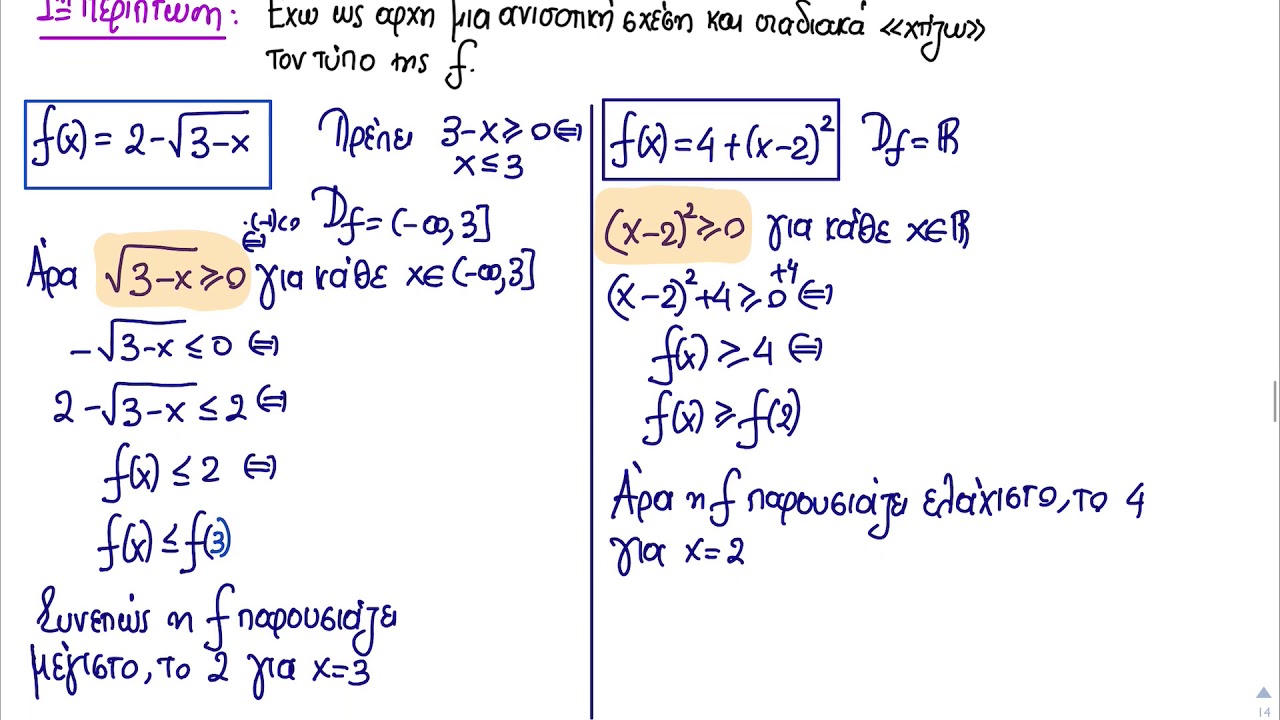 1η Περίπτωση: Έχω ως αρχή μια ανισοτική σχέση και σταδιακά «χτίζω»
τον τύπο της f.
f(x) = 2-√(3-x) Πρέπει 3-x ≥ 0 ⇔
x ≤ 3
D_f = (-∞, 3]
·(-1)<0
⇔
Άρα √(3-x) ≥ 0 για κάθε x∈(-∞, 3]
-√(3-x) ≤ 0 ⇔
2-√(3-x) ≤ 2 ⇔
f(x) ≤ 2 ⇔
f(x) ≤ f(3)
Συνεπώς η f παρουσιάζει
μέγιστο, το 2 για x=3
f(x) = 4+(x-2)² D_f = ℝ
(x-2)² ≥ 0 για κάθε x∈ℝ
+4
(x-2)²+4 ≥ 0 ⇔
f(x) ≥ 4 ⇔
f(x) ≥ f(2)
Άρα η f παρουσιάζει ελάχιστο, το 4
για x=2
14